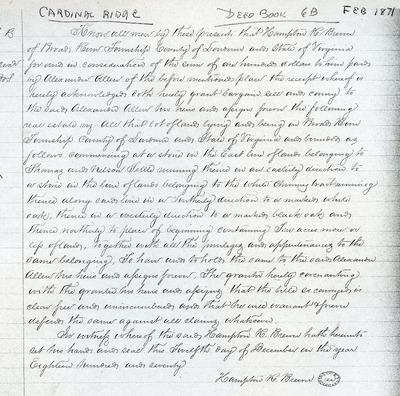 CARDINAL RIDGE DEED BOOK 6B FEB 1871
Know all men by these presents that Hampton R. Brown
of Broad Run Township County of Loudoun and State of Virginia
for and in consideration of the sum of one hundred dollars to him paid
by Alexander Allen of the before mentioned place the receipt whereof is
hereby acknowledged doth hereby grant bargain sell and convey to
the said Alexander Allen his heirs and assigns forever the following
real estate viz All that lot of land lying and being in Broad Run
Township County of Loudoun and State of Virginia and bounded as
follows commencing at a stone in the East line of lands belonging to
Thomas and Nelson Settle running thence in an easterly direction to
a stone in the line of lands belonging to the white Chimney tract running
thence along said line in a Southerly direction to a marked white
oak, thence in a westerly direction to a marked black oak and
thence northerly to place of beginning containing Ten acres more or
less of land, together with all the privileges and appurtenances to the
same belonging, To have and to hold the same to the said Alexander
Allen his heirs and assigns forever. The grantor hereby covenanting
with the grantee his heirs and assigns that the title so conveyed is
clear free and unincumbered and that he will warrant & forever
defend the same against all claims whatsoever.
In witness whereof the said Hampton R. Brown hath hereunto
set his hand and seal this Twelfth day of December in the year
Eighteen hundred and seventy
Hampton R. Brown